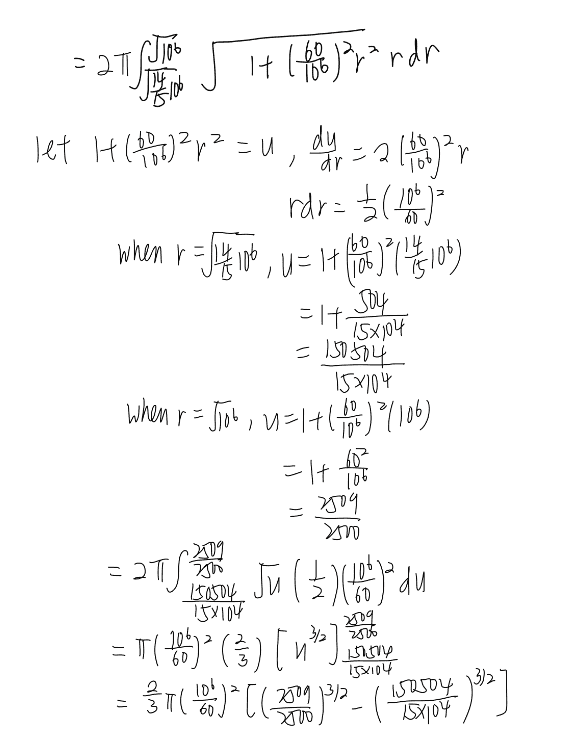 = 2π ∫_{√(14/15 10^6)}^{√10^6} √(1+(60/10^6)^2 r^2) r dr
let 1+(60/10^6)^2 r^2 = u , du/dr = 2(60/10^6)^2 r
rdr = 1/2 (10^6/60)^2
when r = √(14/15 10^6) , u = 1+(60/10^6)^2 (14/15 10^6)
= 1+ 504/(15×10^4)
= 150504/(15×10^4)
when r = √10^6 , u = 1+(60/10^6)^2 (10^6)
= 1+ 60^2/10^6
= 2509/2500
= 2π ∫_{150504/(15×10^4)}^{2509/2500} √u (1/2)(10^6/60)^2 du
= π(10^6/60)^2 (2/3) [u^{3/2}]_{150504/(15×10^4)}^{2509/2500}
= 2/3 π(10^6/60)^2 [(2509/2500)^{3/2} - (150504/(15×10^4))^{3/2}]